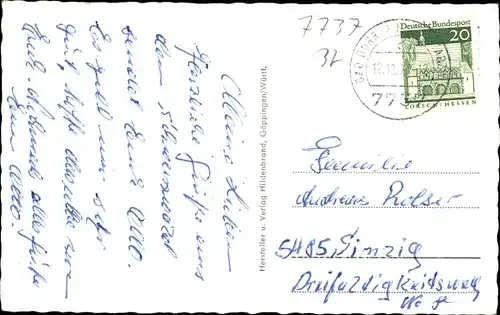 7737
37
Deutsche Bundespost
20
LORSCH/HESSEN
BAD DÜRRH
12.10.
773
Meine Lieben
Herzliche Grüße aus
dem Schwarzwald
sendet Euch Otto.
Es geht mir sehr
gut, hoffe dasselbe von
Euch. Wünsch alles Gute
Euer Otto.
Hersteller u. Verlag Hildenbrand, Göppingen/Württ.
Familie
Andreas
5485 Sinzig
Dreifaldigkeitsweg